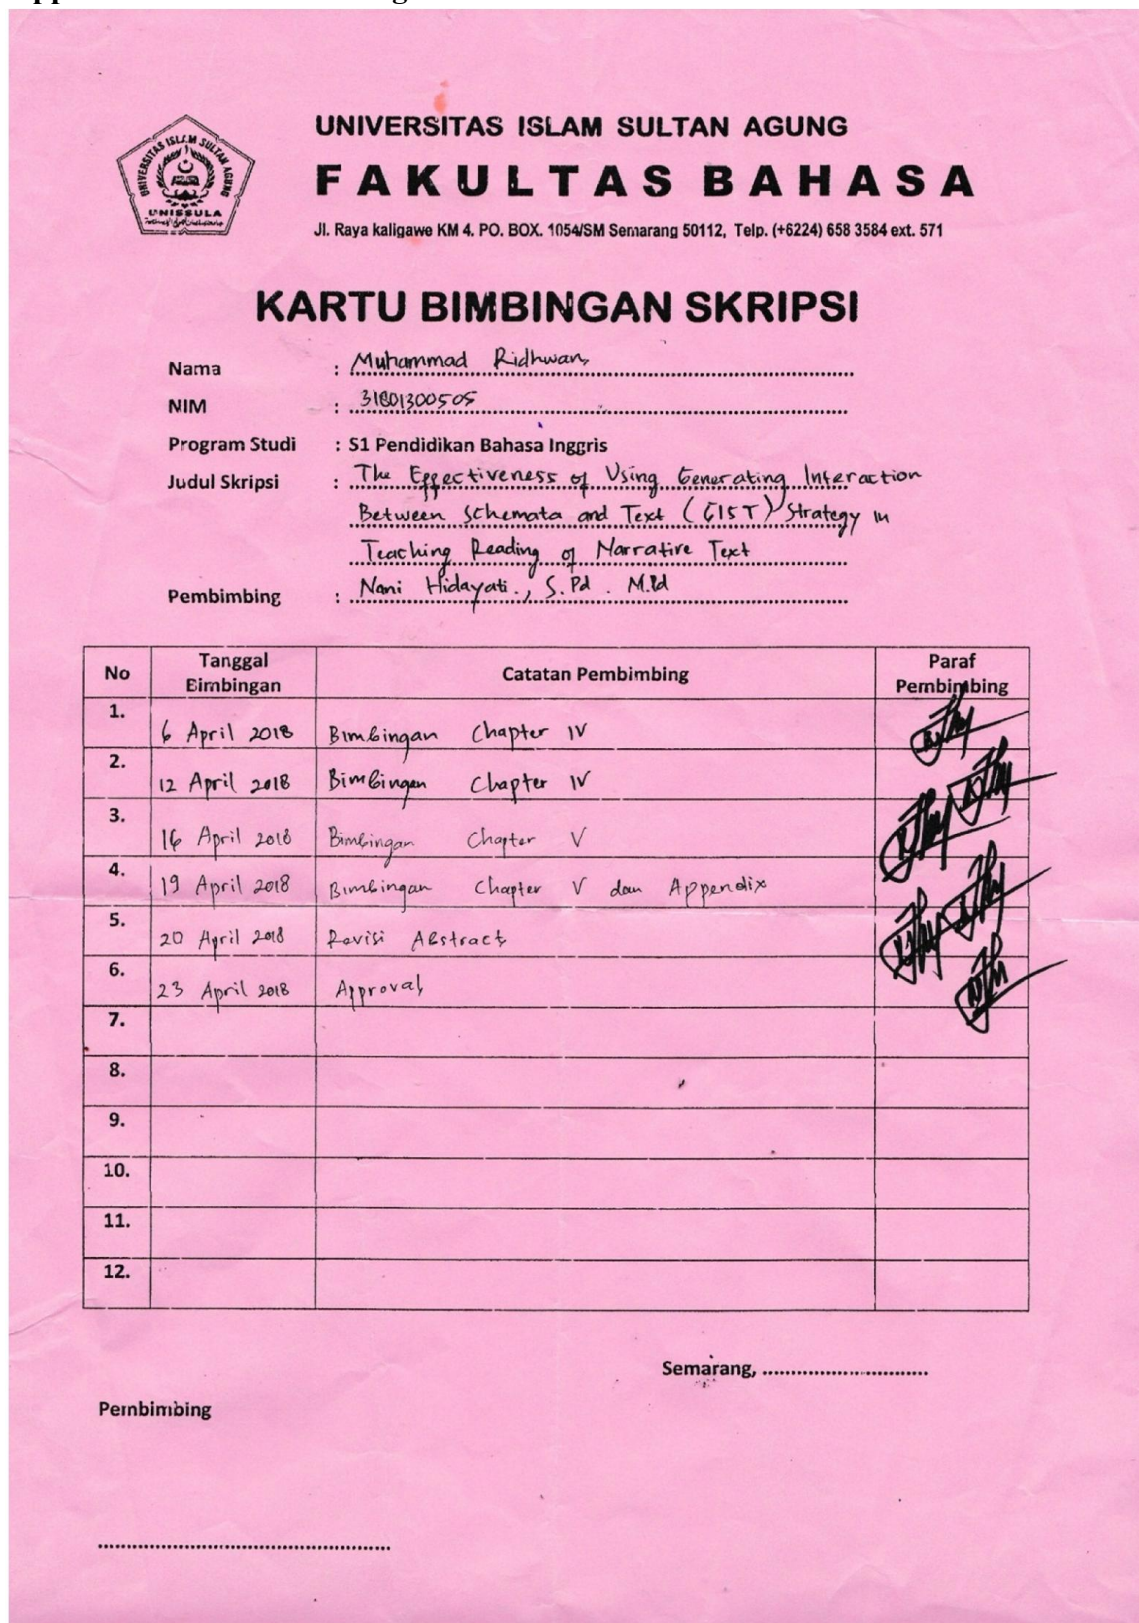 UNIVERSITAS ISLAM SULTAN AGUNG
UNISSULA
UNIVERSITAS ISLAM SULTAN AGUNG
FAKULTAS BAHASA
Jl. Raya kaligawe KM 4. PO. BOX. 1054/SM Semarang 50112, Telp. (+6224) 658 3584 ext. 571
KARTU BIMBINGAN SKRIPSI
Nama : Muhammad Ridhwan
NIM : 31801300505
Program Studi : S1 Pendidikan Bahasa Inggris
Judul Skripsi : The Effectiveness of Using Generating Interaction
Between Schemata and Text (GIST) Strategy in
Teaching Reading of Narrative Text
Pembimbing : Nani Hidayati., S.Pd. M.Pd
No Tanggal Bimbingan Catatan Pembimbing Paraf Pembimbing
1. 6 April 2018 Bimbingan Chapter IV
2. 12 April 2018 Bimbingan Chapter IV
3. 16 April 2018 Bimbingan Chapter V
4. 19 April 2018 Bimbingan Chapter V dan Appendix
5. 20 April 2018 Revisi Abstract
6. 23 April 2018 Approval
7.
8.
9.
10.
11.
12.
Semarang, ..............................
Pembimbing
..................................................